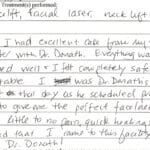 Treatment(s) performed:
celift, facial laser, neck lift
I had excellent care from my
with Dr. Donath. Everything wa
ned well & I felt completely safe
table. I was Dr. Donath's
that day as he scheduled an
to give me the perfect facelift
Little to no pain, quick healing
ad that I came to this facility
Dr. Donath!